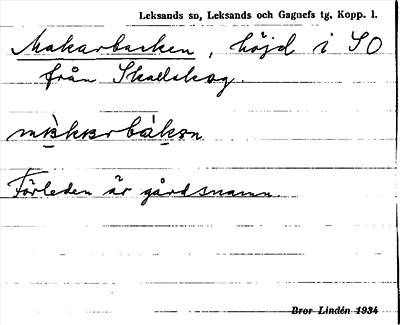 Leksands sn, Leksands och Gagnefs tg, Kopp. l.
Makarbacken, höjd i SO
från Skedskog.
Förleden är gårdsnamn.
Bror Lindén 1934